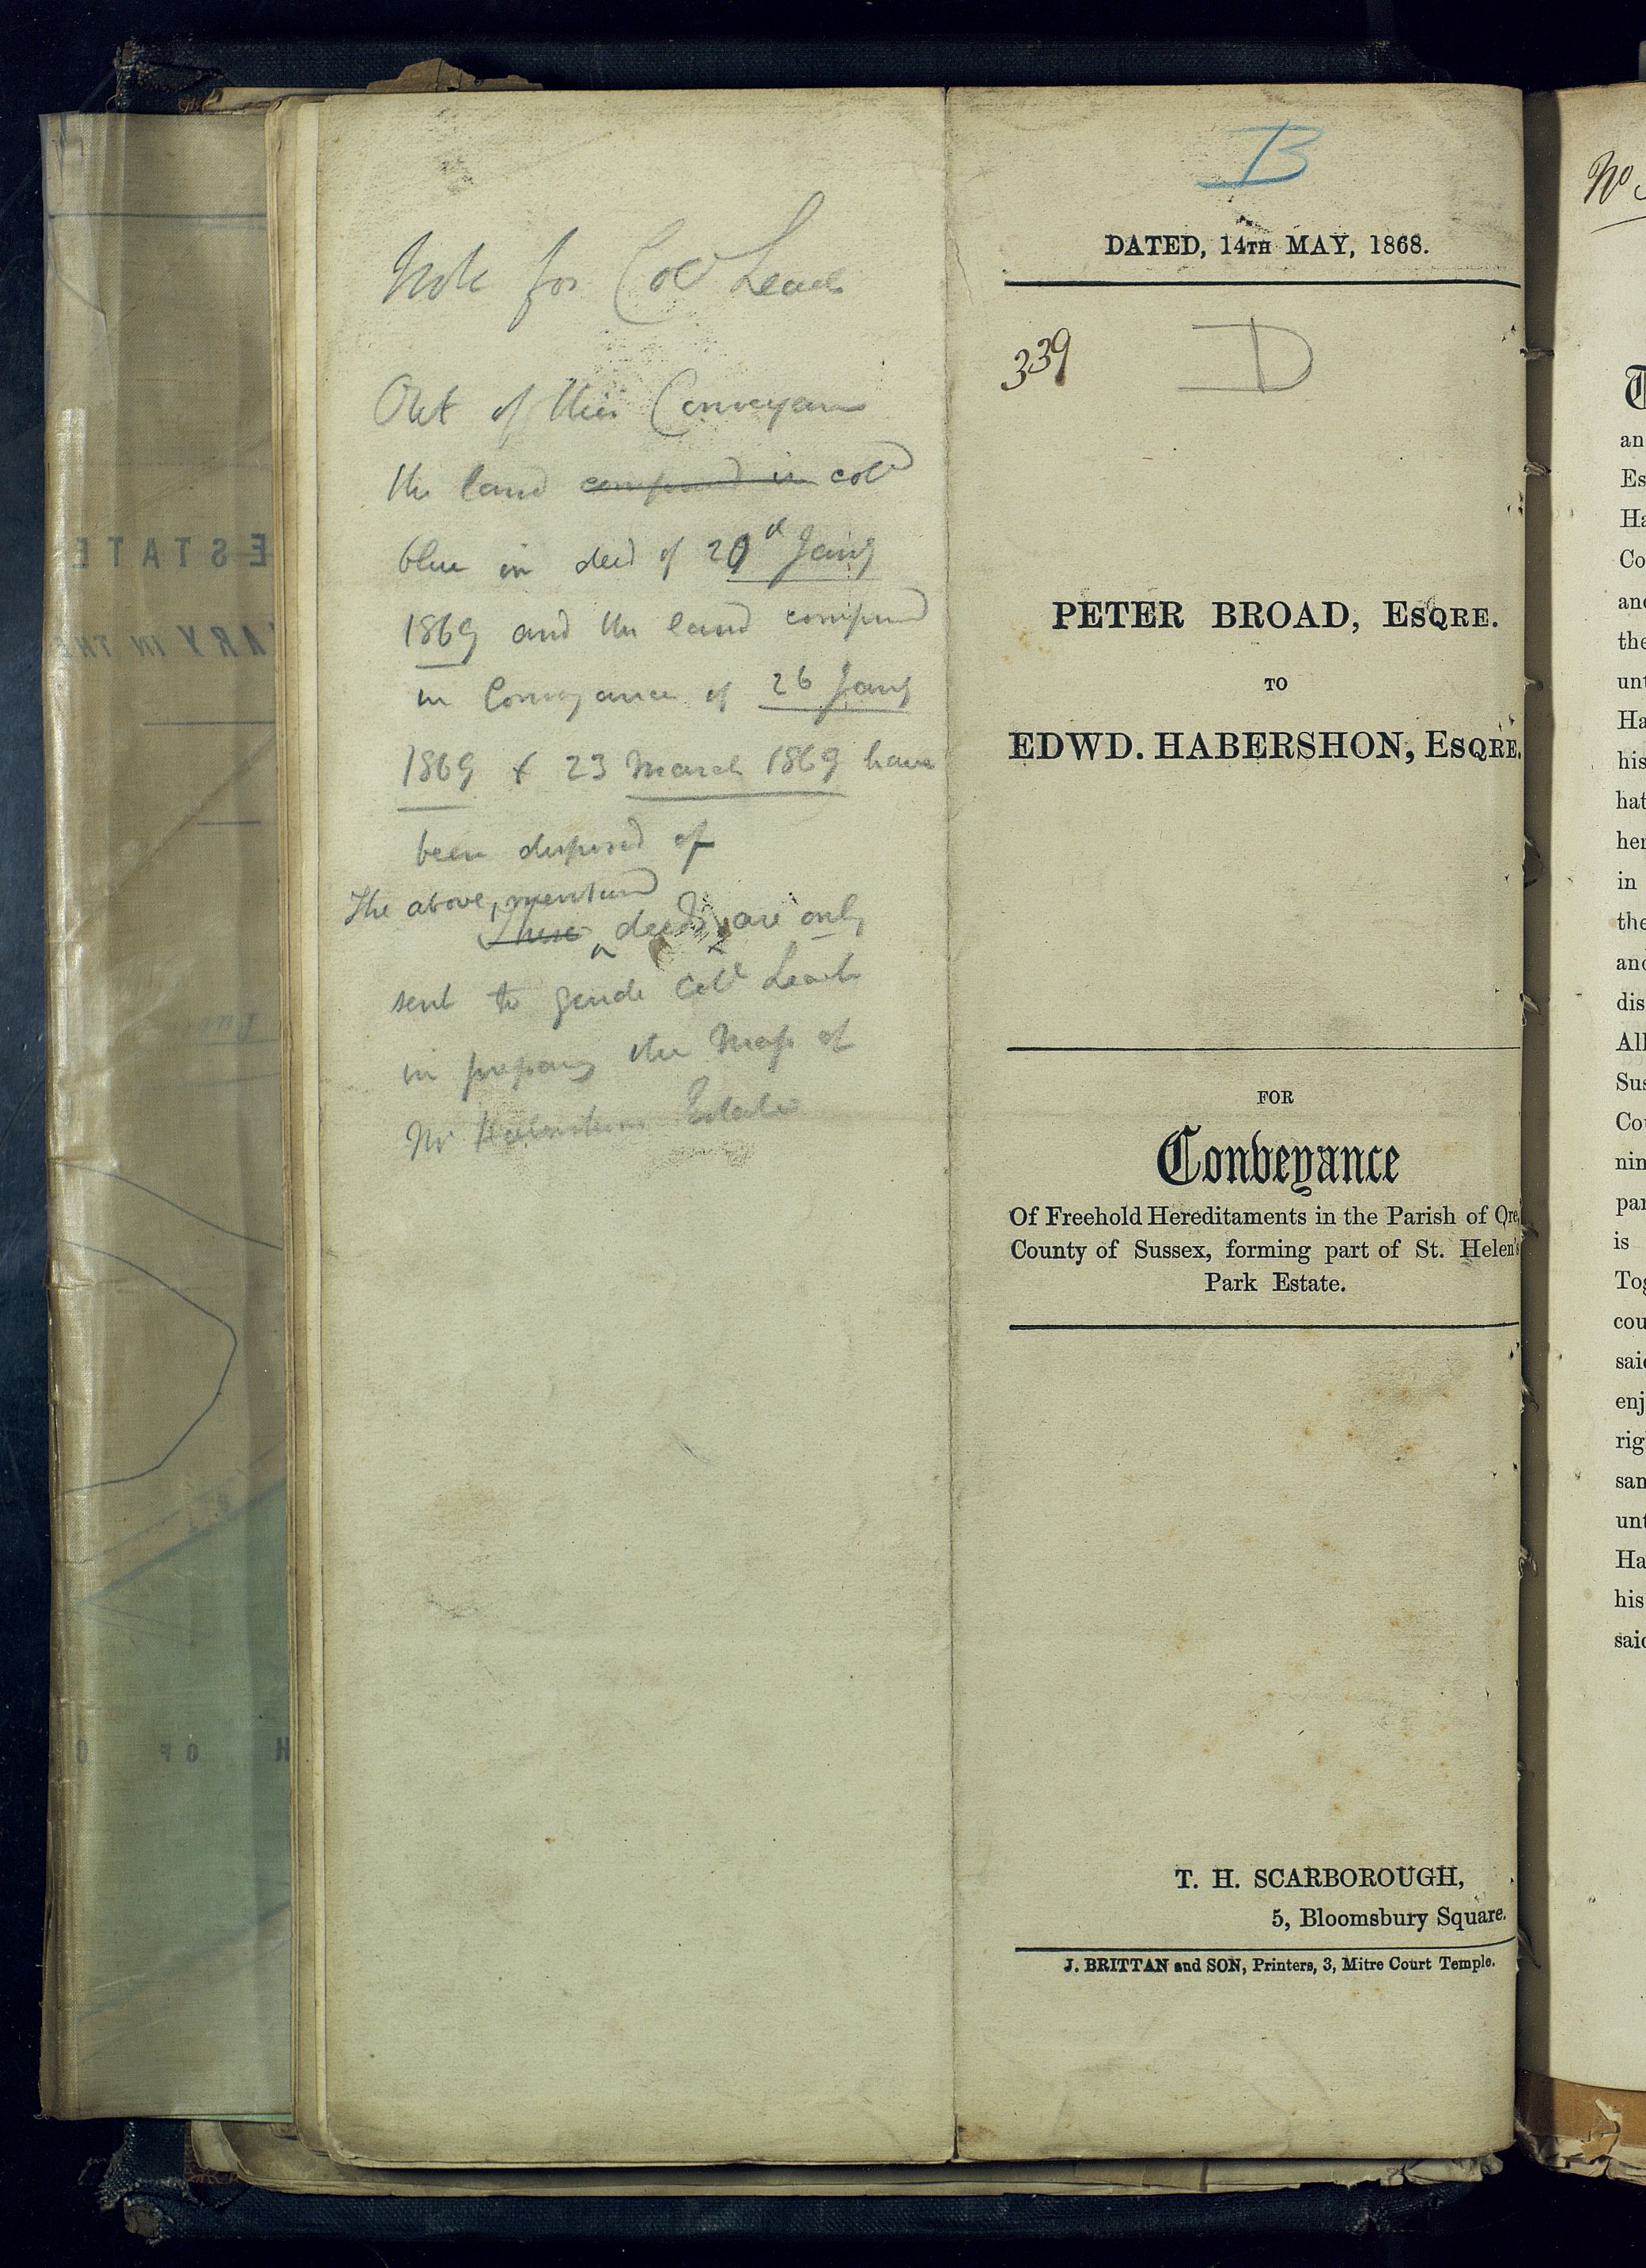 Note for Col Leach
Out of this Conveyance
the land comprised in cold
blue in deed of 20th Jany
1869 and the land comprised
in Conveyance of 26 Jany
1869 & 23 March 1869 have
been disposed of
The above, mentiond
These deeds are only
sent to guide Coll Leach
in preparg the Map of
Mr Habershons Estate
B
DATED, 14TH MAY, 1868.
339
D
PETER BROAD, ESQRE.
TO
EDWD. HABERSHON, ESQRE.
FOR
Conveyance
Of Freehold Hereditaments in the Parish of Ore,
County of Sussex, forming part of St. Helen's
Park Estate.
T. H. SCARBOROUGH,
5, Bloomsbury Square.
J. BRITTAN and SON, Printers, 3, Mitre Court Temple.
ESTATE
ARY IN THE
H OF O
No
an
Es
Ha
Co
and
the
unt
Ha
his
hat
her
in
the
and
dis
All
Sus
Cou
nin
par
is
Tog
cou
said
enj
rig
san
unt
Ha
his
said